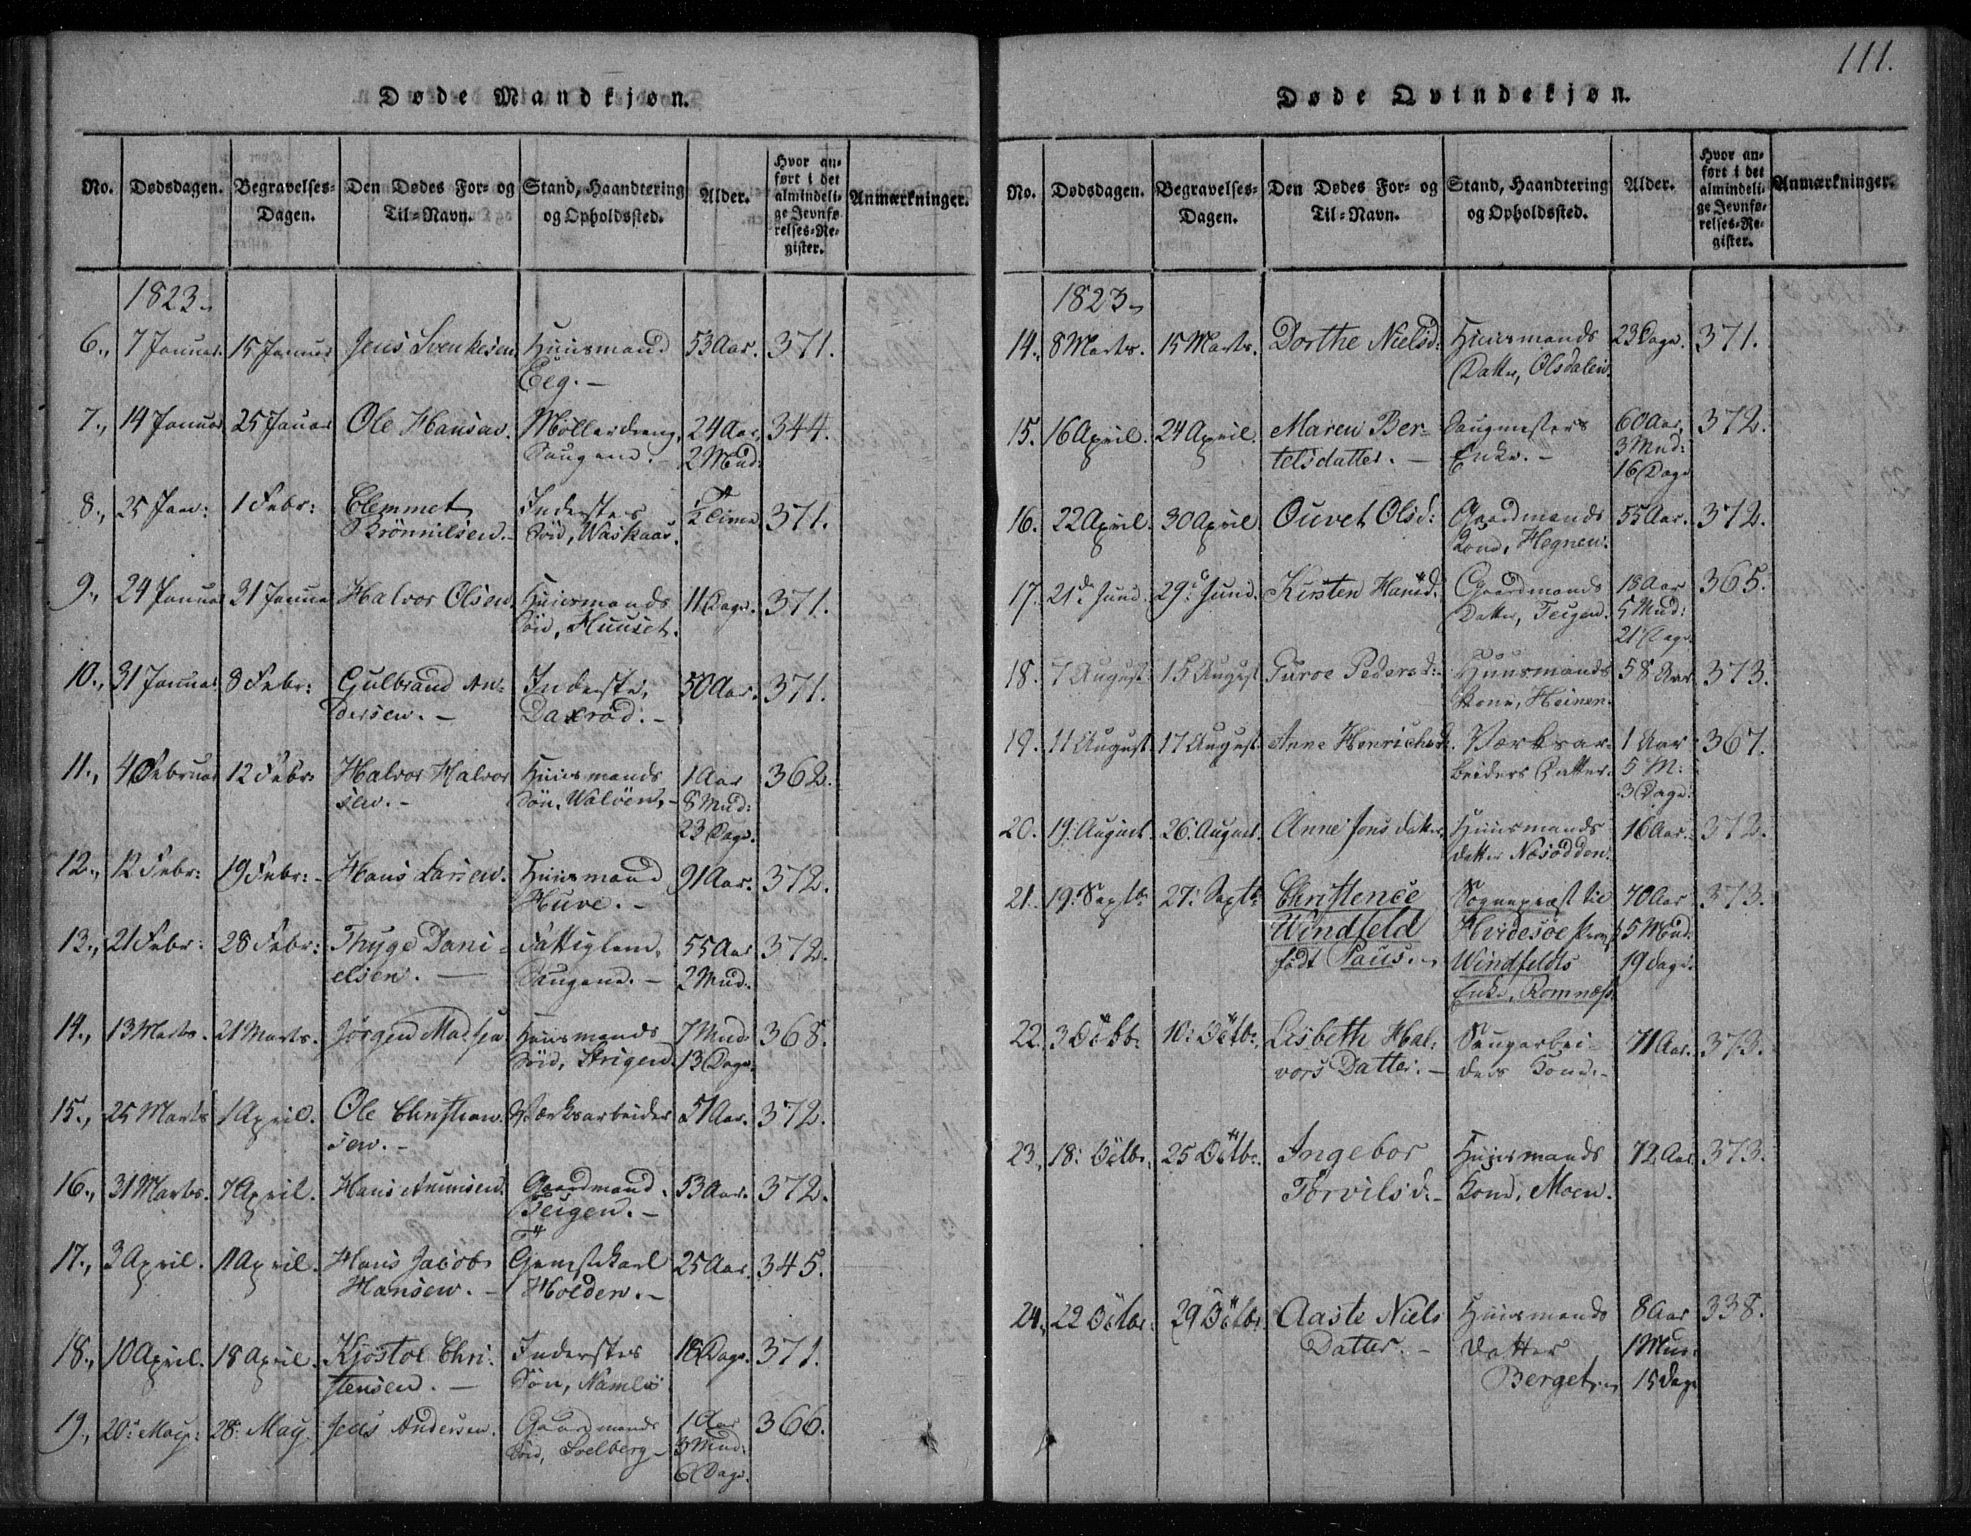 111.
Døde Mandkjøn.
No. Dødsdagen. Begravelses-Dagen. Den Dødes For- og Til-Navn. Stand, Haandtering og Opholdssted. Alder. Hvor anført i det almindelige Jevnførelses-Register. Anmærkninger.
1823
6., 7 Januar 15 Januar Jens Svenkesen Huusmand 53 Aar. 371.
Eeg. -
7., 14 Januar 25 Januar Ole Hansen. Møllerdreng, 24 Aar, 344.
Saugene. - 2 Mnd:
8., 25 Jan: 1 Febr: Clemmet Indersters ½ Time 371.
Brønnilsen. Søn, Waskaas.
9., 24 Januar 31 Januar Halvor Olsen Huusmands 11 Dage. 371.
Søn, Huuset.
10., 31 Januar 8 Febr: Gulbrand An- Inderste, 50 Aar. 371.
dersen. - Daxrød. -
11., 4 Februar 12 Febr: Halvor Halvor Huusmands 1 Aar 362.
sen. - Søn, Waløen, - 8 Mnd:
23 Dage.
12., 12 Febr: 19 Febr: Hans Larsen. Huusmand 91 Aar. 372.
Huve. -
13., 21 Febr: 28 Febr: Thyge Dani- Fattiglem, 55 Aar 372.
elsen. - Saugene. - 2 Mnd:
14., 13 Marts. 21 Marts. Jørgen Madsen Huusmands 7 Mnd: 368.
Søn, Strigen 13 Dage.
15., 25 Marts 1 April. Ole Christian Værksarbeider 51 Aar. 372.
sen. -
16., 31 Marts. 7 April. Hans Aunnsen Gaardmand. 53 Aar. 372.
Teigen. -
17., 3 April. 11 April. Hans Jacob Tjenestekarl 25 Aar. 345.
Hansen. - Holden. -
18., 10 April. 18 April. Kjøstol Chri- Indersters 18 Dage. 371.
stensen. - Søn, Namløs
19., 20: May: 28: May. Jens Andersen. Gaardmands 1 Aar 366.
Søn, Soelberg 3 Mnd:
6 Dage.
Døde Qvindekjøn.
No. Dødsdagen. Begravelses-Dagen. Den Dødes For- og Til-Navn. Stand, Haandtering og Opholdssted. Alder. Hvor anført i det almindelige Jevnførelses-Register. Anmærkninger.
1823
14., 8 Marts. 15 Marts. Dorthe Nielsd: Huusmands 23 Dage. 371.
Datter, Olsdalen.
15. 16 April. 24 April. Maren Ber- Saugmesters 60 Aar, 372.
telsdatter. - Enke. - 3 Mnd:
16 Dage
16. 22 April. 30 April Ouvet Olsd: Gaardmands 55 Aar. 372.
Kone, Hegnen.
17. 21de Juni 29: Juni. Kirsten Hansd. Gaardmands 18 Aar 365.
Datter, Teigen. 5 Mnd:
21 Dage
18. 7 August 15 August Turoe Pedersd: Huusmands 58 Aar 373.
Kone, Heinen.
19. 11 August. 17 August. Anne Henrichsd. Værksar- 1 Aar 367.
beiders Datter. 5 M:
3 Dage.
20. 19: August. 26: August. Anne Jonsdatter Huusmands 16 Aar. 372.
datter Næsodden.
21. 19: Septbr 27: Septb: Christence Sognepræst til 70 Aar 373.
Windfeld Hvidesøe 5 Mnd:
født Paus. Windfeldts 19 dage.
Enke, Romnæss.
22. 3 Octbr. 10: Octbr. Lisbeth Hal- Saugarbei- 71 Aar. 373.
vors Datter. - ders Kone. -
23., 18: Octbr. 25 Octbr. Ingebor Huusmands 72 Aar. 373.
Torvilsd. - Kone, Moen.
24., 22 Octbr: 29 Octbr. Aaste Niels Huusmands 8 Aar 338.
Datter. - Datter 1 Mnd:
Berget 15 Dage